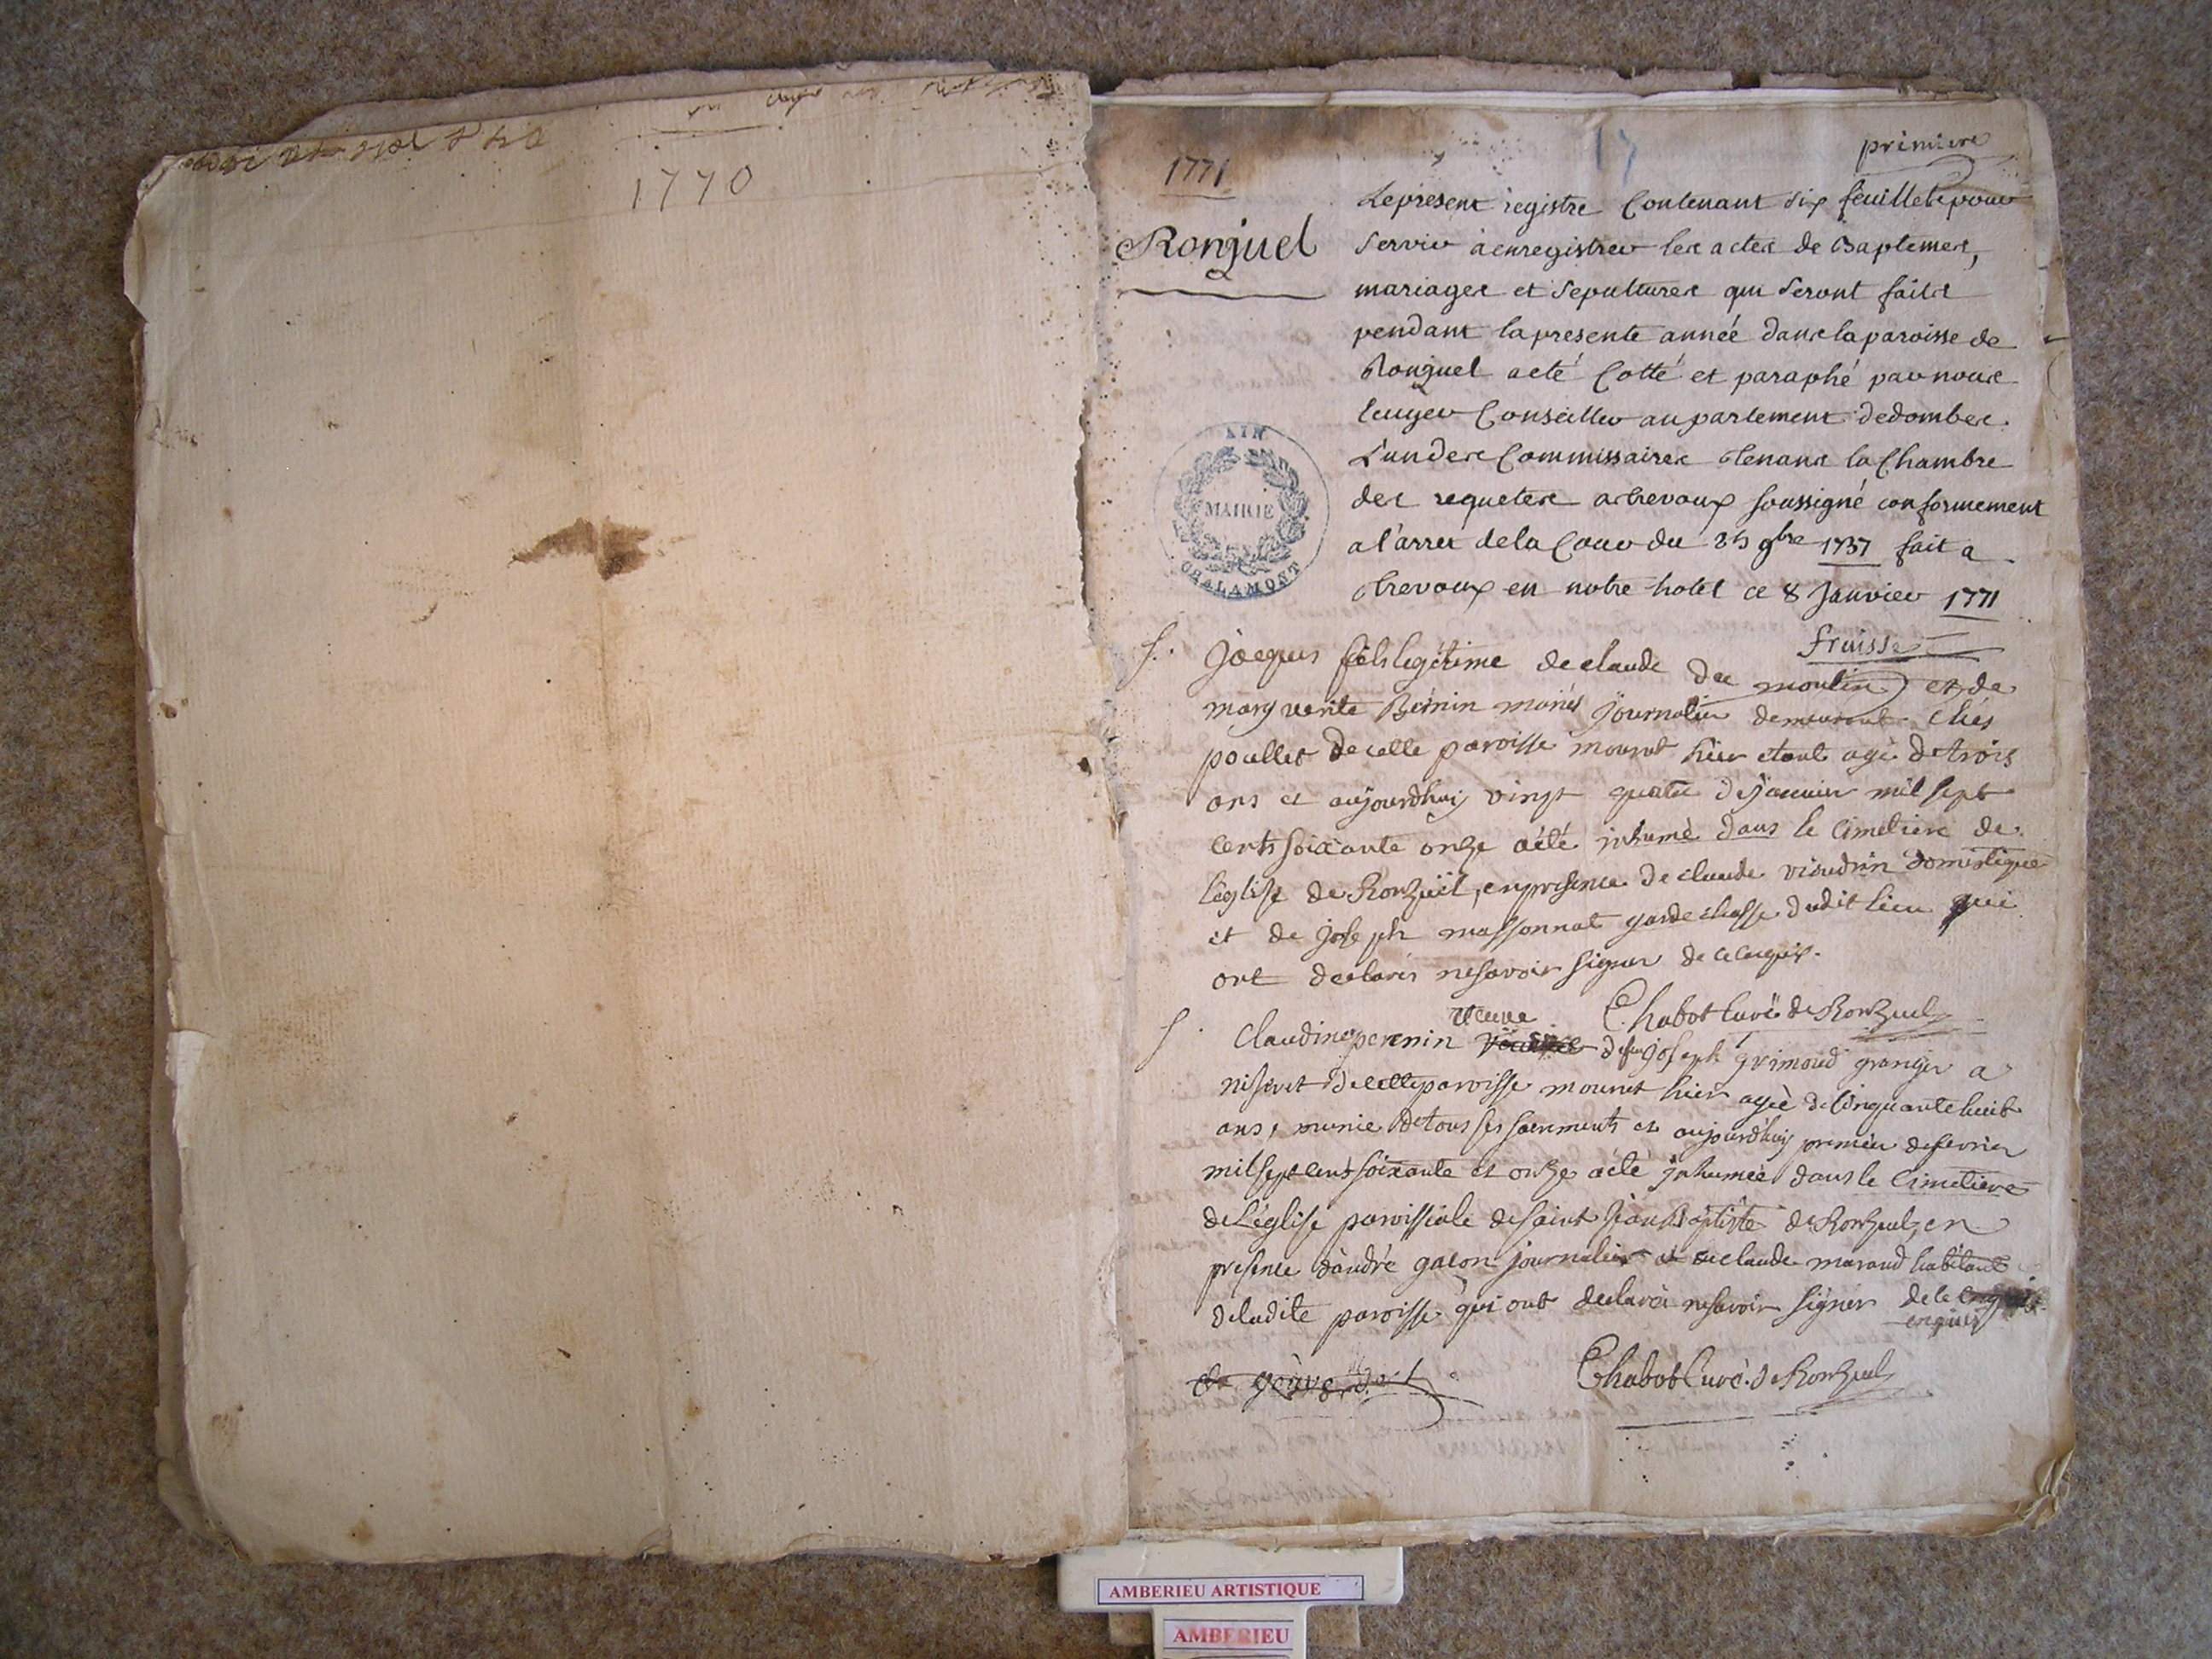 1770
1771
17
premiere
Ronzuel
Le present registre Contenant six feuillets pour
servir a enregistrer les actes de Baptemes,
mariages et sepultures qui seront faits
pendant la presente année dans la paroisse de
Ronzuel acté Cotté et paraphé par nous
Ecuyer Conseiller au parlement de dombes
L'un des Commissaires tenant la Chambre
des requetes a trevoux soussigné conformement
a l'arret de la Cour du 25 9bre 1737 fait a
trevoux en notre hotel ce 8 Janvier 1771
fruisse
AIN
MAIRIE
CHALAMONT
S. Jacques fils legitime de claude du moulin et de
marguerite Bernin mariés journalier demeurant chés
poullet de cette paroisse mourut hier etant agé de trois
ans et aujourdhuy vingt quatre de janvier mil sept
cents soixante onze a été inhumé dans le cimetiere de
l'eglise de Ronzuël, en presence de claude vioudrin domestique
et de joseph massonnat garde chasse dudit lieu qui
ont declarés ne savoir signer de ce enquis.
Chabot Curé de Ronzuel
veuve
S. Claudine perenin de feu joseph grimoud granger a
niseret de cette paroisse mourut hier agée de cinquante huit
ans, munie de tous ses sacrements et aujourdhuy premier de fevrier
mil sept cents soixante et onze a été inhumée dans le cimetiere
de L'église paroissiale de saint Jean Baptiste de Ronzuel, en
presence d'andré gacon journalier et de claude marand habitant
de ladite paroisse qui ont declaré ne savoir signer de ce
enquis
Chabot Curé de Ronzuel
AMBERIEU ARTISTIQUE
AMBERIEU